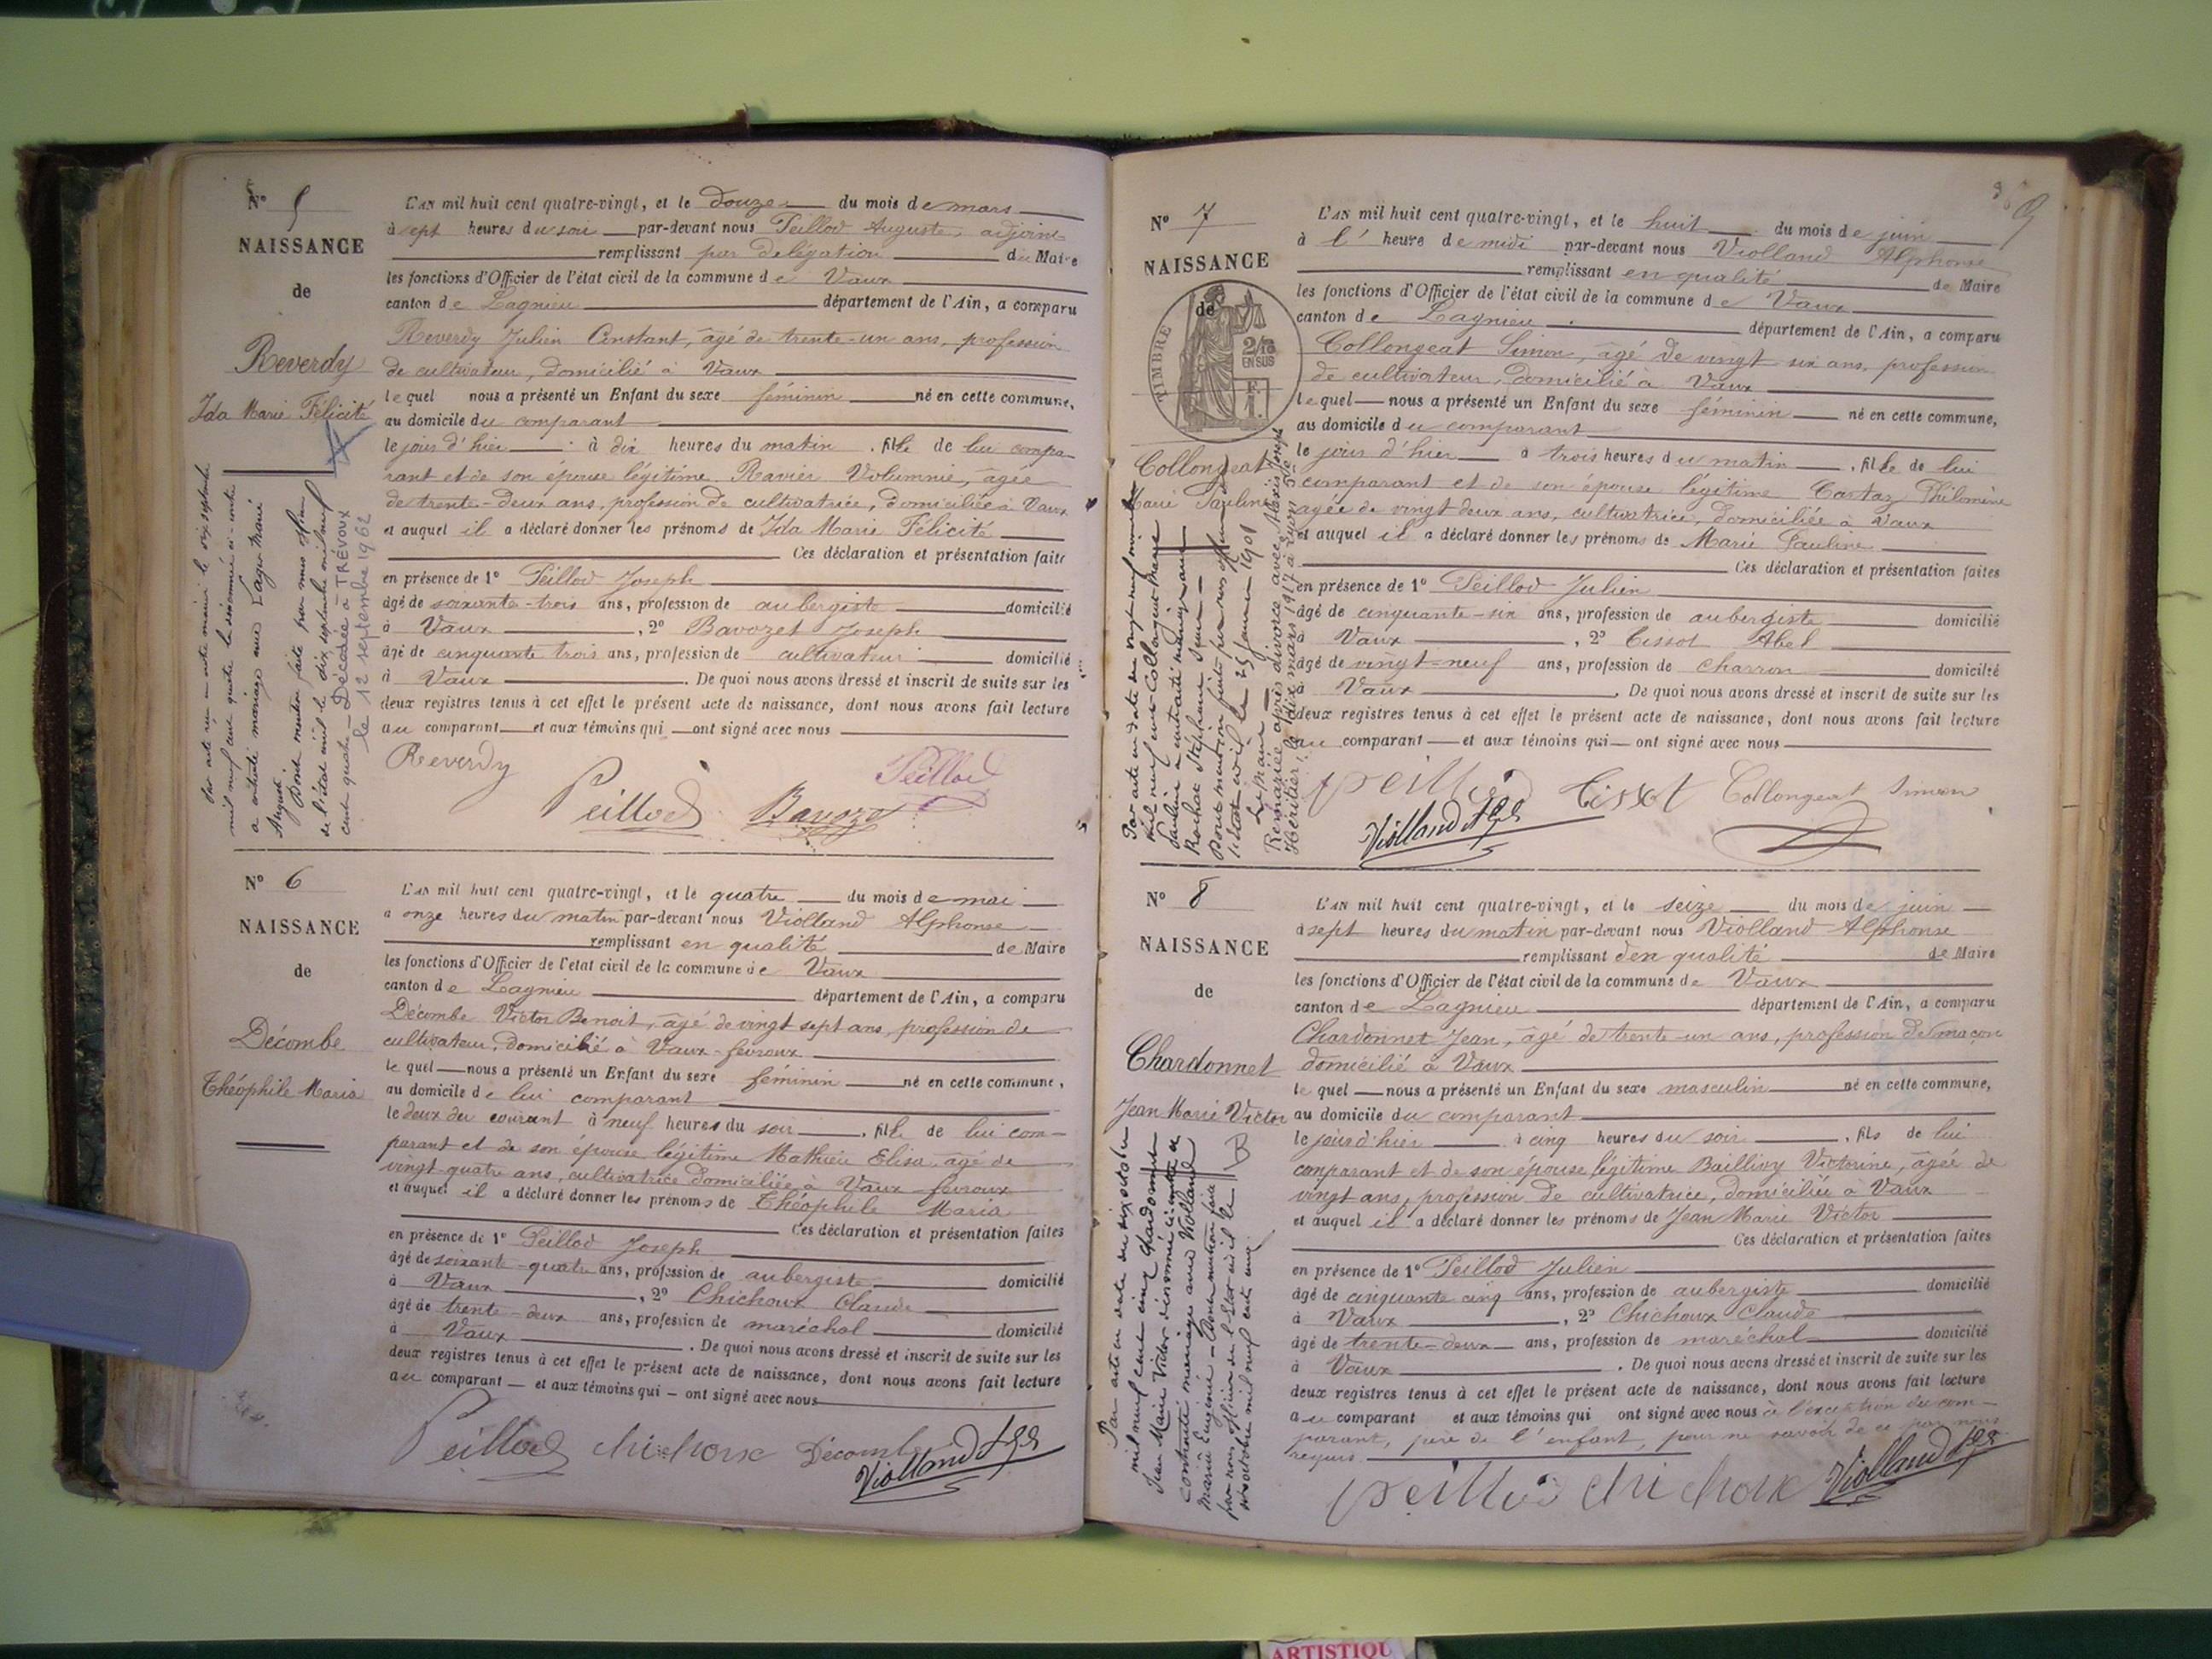 N° 5
NAISSANCE
de
Reverdy
Ida Marie Félicité
L'AN mil huit cent quatre-vingt, et le douze du mois de mars
à sept heures du soir par-devant nous Peillod Auguste, adjoint
remplissant par délégation du Maire
les fonctions d'Officier de l'état civil de la commune de Vaux
canton de Lagnieu département de l'Ain, a comparu
Reverdy Julien Constant, âgé de trente-un ans, profession
de cultivateur, domicilié à Vaux
lequel nous a présenté un Enfant du sexe féminin né en cette commune,
au domicile du comparant
le jour d'hier à dix heures du matin, fille de lui compa-
rant et de son épouse légitime Ravier Volumnie, âgée
de trente-deux ans, profession de cultivatrice, domiciliée à Vaux
et auquel il a déclaré donner les prénoms de Ida Marie Félicité
Ces déclaration et présentation faites
en présence de 1° Peillod Joseph
âgé de soixante-trois ans, profession de aubergiste domicilié
à Vaux, 2° Bavozet Joseph
âgé de cinquante trois ans, profession de cultivateur domicilié
à Vaux. De quoi nous avons dressé et inscrit de suite sur les
deux registres tenus à cet effet le présent acte de naissance, dont nous avons fait lecture
au comparant et aux témoins qui ont signé avec nous
Reverdy Peillod Bavozet Peillod
Par acte reçu en notre mairie le dix septembre
mil neuf cent quatre la désnommée ci-contre
a contracté mariage avec Lager Marie
August.
Dont mention faite par nous officier
de l'état civil le dix septembre mil neuf
cent quatre - Décédée à TRÉVOUX
le 12 septembre 1962
N° 6
NAISSANCE
de
Décombe
Théophile Maria
L'AN mil huit cent quatre-vingt, et le quatre du mois de mai
à onze heures du matin par-devant nous Violland Alphonse
remplissant en qualité de Maire
les fonctions d'Officier de l'état civil de la commune de Vaux
canton de Lagnieu département de l'Ain, a comparu
Décombe Victor Benoit, âgé de vingt sept ans, profession de
cultivateur, domicilié à Vaux-févroux
lequel nous a présenté un Enfant du sexe féminin né en cette commune,
au domicile de lui comparant
le deux du courant à neuf heures du soir, fille de lui com-
parant et de son épouse légitime Mathieu Elisa, âgé de
vingt-quatre ans, cultivatrice domiciliée à Vaux-févroux
et auquel il a déclaré donner les prénoms de Théophile Maria
Ces déclaration et présentation faites
en présence de 1° Peillod Joseph
âgé de soixante-quatre ans, profession de aubergiste domicilié
à Vaux, 2° Chichoux Claude
âgé de trente-deux ans, profession de maréchal domicilié
à Vaux. De quoi nous avons dressé et inscrit de suite sur les
deux registres tenus à cet effet le présent acte de naissance, dont nous avons fait lecture
au comparant et aux témoins qui ont signé avec nous
Peillod chichoux Décombe Violland Alph
9
N° 7
NAISSANCE
de
TIMBRE
2/10
EN SUS
F.
1.
Collongeat
Marie Pauline
L'AN mil huit cent quatre-vingt, et le huit du mois de juin
à l'heure de midi par-devant nous Violland Alphonse
remplissant en qualité de Maire
les fonctions d'Officier de l'état civil de la commune de Vaux
canton de Lagnieu département de l'Ain, a comparu
Collongeat Simon, âgé de vingt six ans, profession
de cultivateur, domicilié à Vaux
lequel nous a présenté un Enfant du sexe féminin né en cette commune,
au domicile du comparant
le jour d'hier à trois heures du matin, fille de lui
comparant et de son épouse légitime Cartaz Philomène
âgée de vingt deux ans, cultivatrice, domiciliée à Vaux
et auquel il a déclaré donner les prénoms de Marie Pauline
Ces déclaration et présentation faites
en présence de 1° Peillod Julien
âgé de cinquante-six ans, profession de aubergiste domicilié
à Vaux, 2° Cissot Abel
âgé de vingt-neuf ans, profession de charron domicilié
à Vaux. De quoi nous avons dressé et inscrit de suite sur les
deux registres tenus à cet effet le présent acte de naissance, dont nous avons fait lecture
au comparant et aux témoins qui ont signé avec nous
peillod Cissot Collongeat Simon
Violland Alph
Par acte en date du vingt neuf
mil neuf cent Collongeat Marie
Pauline a contracté mariage avec
Rochas Stéphane
Dont mention faite par nous officier de
l'état civil le 25 janvier 1901
Le Maire
Remariée après divorce avec Alexis Joseph
Héritier le dix mars 1917 à Lyon 5e
N° 8
NAISSANCE
de
Chardonnet
Jean Marie Victor
L'AN mil huit cent quatre-vingt, et le seize du mois de juin
à sept heures du matin par-devant nous Violland Alphonse
remplissant d'en qualité de Maire
les fonctions d'Officier de l'état civil de la commune de Vaux
canton de Lagnieu département de l'Ain, a comparu
Chardonnet Jean, âgé de trente-un ans, profession de maçon
domicilié à Vaux
lequel nous a présenté un Enfant du sexe masculin né en cette commune,
au domicile du comparant
le jour d'hier à cinq heures du soir, fils de lui
comparant et de son épouse légitime Baillivy Victorine, âgée de
vingt ans, profession de cultivatrice, domiciliée à Vaux
et auquel il a déclaré donner les prénoms de Jean Marie Victor
Ces déclaration et présentation faites
en présence de 1° Peillod Julien
âgé de cinquante cinq ans, profession de aubergiste domicilié
à Vaux, 2° Chichoux Claude
âgé de trente-deux ans, profession de maréchal domicilié
à Vaux. De quoi nous avons dressé et inscrit de suite sur les
deux registres tenus à cet effet le présent acte de naissance, dont nous avons fait lecture
au comparant et aux témoins qui ont signé avec nous à l'exception du com-
parant, père de l'enfant, pour ne savoir de ce par nous
requis
peillod chichoux Violland Alph
Par acte en date du six octobre
mil neuf cent cinq Chardonnet
Jean Marie Victor désnommé ci-contre a
contracté mariage avec Violland
Marie Eugénie - Dont mention faite
par nous officier de l'état civil le
six octobre mil neuf cent cinq.
ARTISTIQU